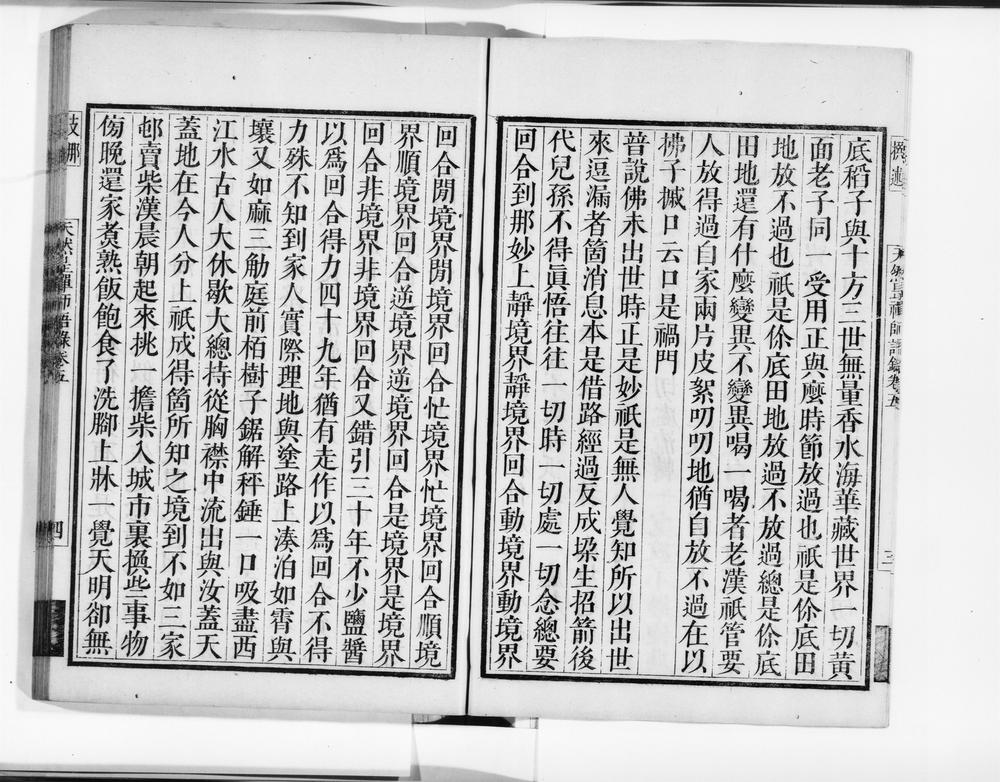 底稻子與十方三世無量香水海華藏世界一切黃
面老子同一受用正與麼時節放過也祇是伱底田
地放不過也祇是伱底田地放過不放過總是伱底
田地還有什麼變異不變異喝一喝者老漢祇管要
人放得過自家兩片皮絮叨叨地猶自放不過在以
拂子摵口云口是禍門
普說佛未出世時正是妙祇是無人覺知所以出世
來逗漏者箇消息本是借路經過反成垜生招箭後
代兒孫不得眞悟往往一切時一切處一切念總要
回合到那妙上靜境界靜境界回合動境界動境界
三
回合閒境界閒境界回合忙境界忙境界回合順境
界順境界回合逆境界逆境界回合是境界是境界
回合非境界非境界回合又錯引二十年不少鹽醬
以爲回合得力四十九年猶有走作以爲回合不得
力殊不知到家人實際理地與塗路上湊泊如霄與
壤又如麻三觔庭前栢樹子鋸解秤錘一口吸盡西
江水古人大休歇大總持從胸襟中流出與汝蓋天
蓋地在今人分上祇成得箇所知之境到不如三家
邨賣柴漢晨朝起來挑一擔柴入城市裏換些事物
傍晚還家煑熟飯飽食了洗腳上牀一覺天明卻無
天然昰禪師語錄卷五
四